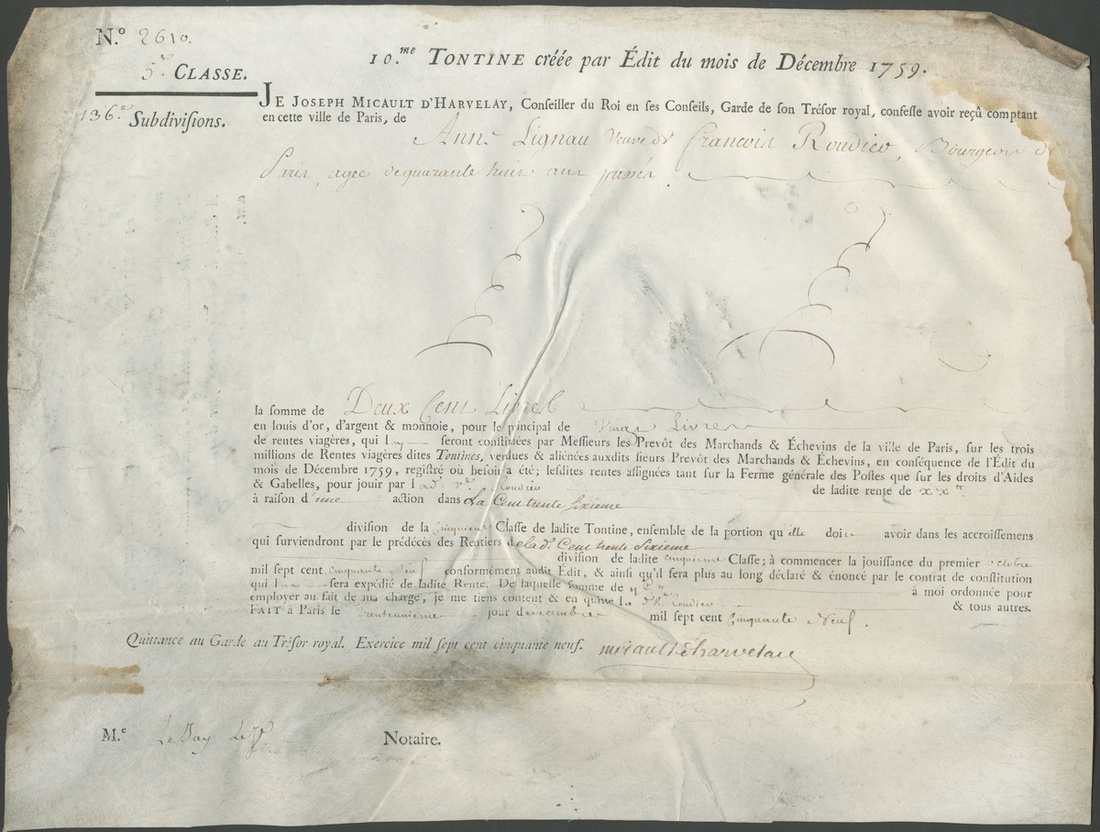 N.º 2610.
10.me TONTINE créée par Édit du mois de Décembre 1759.
5.e CLASSE.
JE JOSEPH MICAULT D'HARVELAY, Conseiller du Roi en ses Conseils, Garde de son Trésor royal, confesse avoir reçû comptant
136.e Subdivisions.
en cette ville de Paris, de
Anne Lignau Veuve de francois Roudier, Bourgeois de
Paris, agée de quarante huit ans passés
la somme de Deux Cent Livres
en louis d'or, d'argent & monnoie, pour le principal de Vingt Livres
de rentes viagères, qui seront constituées par Messieurs les Prevôt des Marchands & Échevins de la ville de Paris, sur les trois
millions de Rentes viagères dites Tontines, vendues & aliénées auxdits sieurs Prevôt des Marchands & Échevins, en conséquence de l'Édit du
mois de Décembre 1759, registré où besoin a été; lesdites rentes assignées tant sur la Ferme générale des Postes que sur les droits d'Aides
& Gabelles, pour jouir par lad. Ve. Roudier de ladite rente de xx tt
à raison d'une action dans La Cent trente Sixieme
division de la Cinquieme Classe de ladite Tontine, ensemble de la portion qu'elle doit avoir dans les accroissemens
qui surviendront par le prédécès des Rentiers de la d. Cent trente Sixieme
division de ladite cinquieme Classe; à commencer la jouissance du premier octobre
mil sept cent cinquante neuf conformément audit Édit, & ainsi qu'il sera plus au long déclaré & énoncé par le contrat de constitution
qui sera expédié de ladite Rente. De laquelle somme de à moi ordonnée pour
employer au fait de ma charge, je me tiens content & en quitte la d. Ve. Roudier & tous autres.
FAIT à Paris le trente unieme jour decembre mil sept cent Cinquante Neuf.
Quittance au Garde au Trésor royal. Exercice mil sept cent cinquante neuf. micault d'harvelay
M.e Notaire.